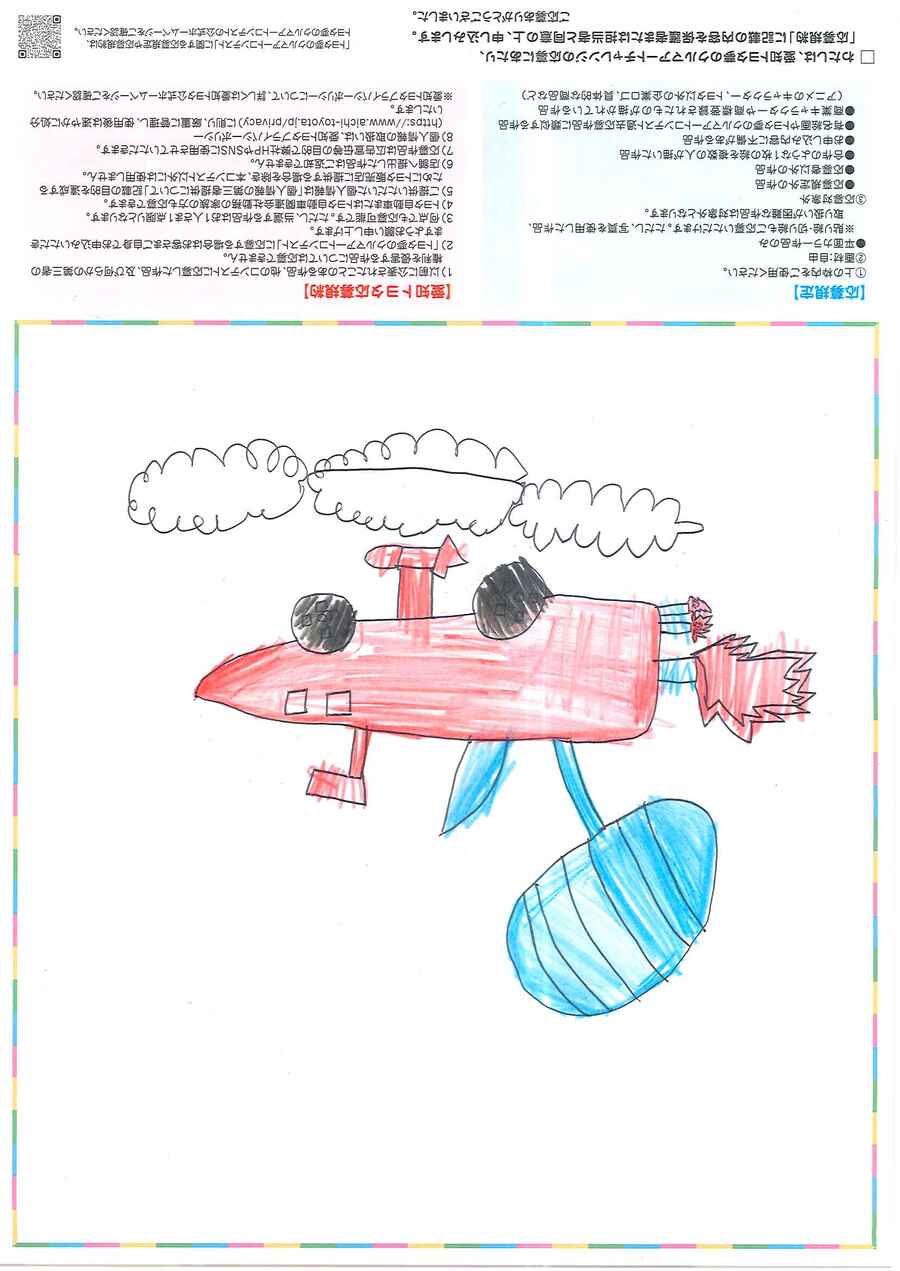 【応募規定】
①上の枠内をご使用ください。
②画材:自由
●平面カラー作品のみ
※貼り絵・切り絵もご応募いただけます。ただし、写真を使用した作品、
取扱いが困難な作品は対象外となります。
③応募対象外
●応募規定外の作品
●応募者以外の作品
●合作のような1枚の絵を複数の人が描いた作品
●お申し込み内容に不備がある作品
●有名絵画やトヨタ夢のクルマアートコンテスト過去応募作品に類似する作品
●商業キャラクターや商標登録されたものが描かれている作品
(アニメのキャラクター、トヨタ以外の企業ロゴ、具体的な商品など)
【愛知トヨタ応募規約】
1)以前に公表されたことのある作品、他のコンテストに応募した作品、及び何らかの第三者の
権利を侵害する作品については応募できません。
2)「トヨタ夢のクルマアートコンテスト」に応募する場合はお客さまご自身でお申込みいただき
ますようお願い申し上げます。
3)何点でも応募可能です。ただし、当選する作品はお1人さま1点限りとなります。
4)トヨタ自動車またはトヨタ自動車関連会社勤務の家族の方も応募できます。
5)ご提供いただいた個人情報は「個人情報の第三者提供について」記載の目的を達成する
ためにトヨタ販売店に提供する場合を除き、本コンテスト以外には使用しません。
6)店舗へ提出した作品はご返却できません。
7)応募作品は広告宣伝等の目的で弊社HPやSNSに使用させていただきます。
8)個人情報の取扱いは、愛知トヨタプライバシーポリシー
(https://www.aichi-toyota.jp/privacy)に則り、厳重に管理し、使用後は速やかに処分
いたします。
※愛知トヨタプライバシーポリシーについて、詳しくは愛知トヨタ公式ホームページをご確認ください。
□わたしは、愛知トヨタ夢のクルマアートチャレンジの応募にあたり、
「応募規約」に記載の内容を保護者または担当者と同意の上、申し込みします。
ご応募ありがとうございました。
「トヨタ夢のクルマアートコンテスト」に関する応募規定や応募規約は、
トヨタ夢のクルマアートコンテストの公式ホームページをご確認ください。